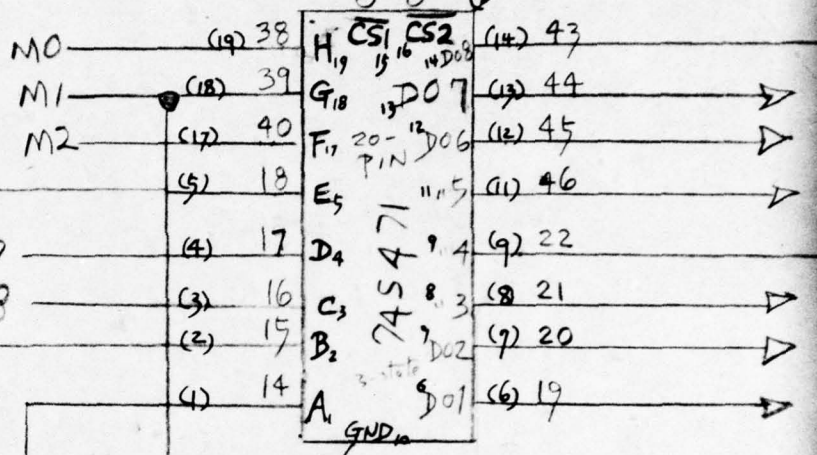 M0 (19) 38 H19 CS1 15 16 CS2 14 D08 (14) 43
M1 (18) 39 G18 13 D07 (13) 44
M2 (17) 40 F17 20-PIN 12 D06 (12) 45
(5) 18 E5 11 " 5 (11) 46
(4) 17 D4 9 " 4 (9) 22
(3) 16 C3 74S471 8 " 3 (8) 21
(2) 15 B2 7 D02 (7) 20
3-state
(1) 14 A1 6 D01 (6) 19
GND10